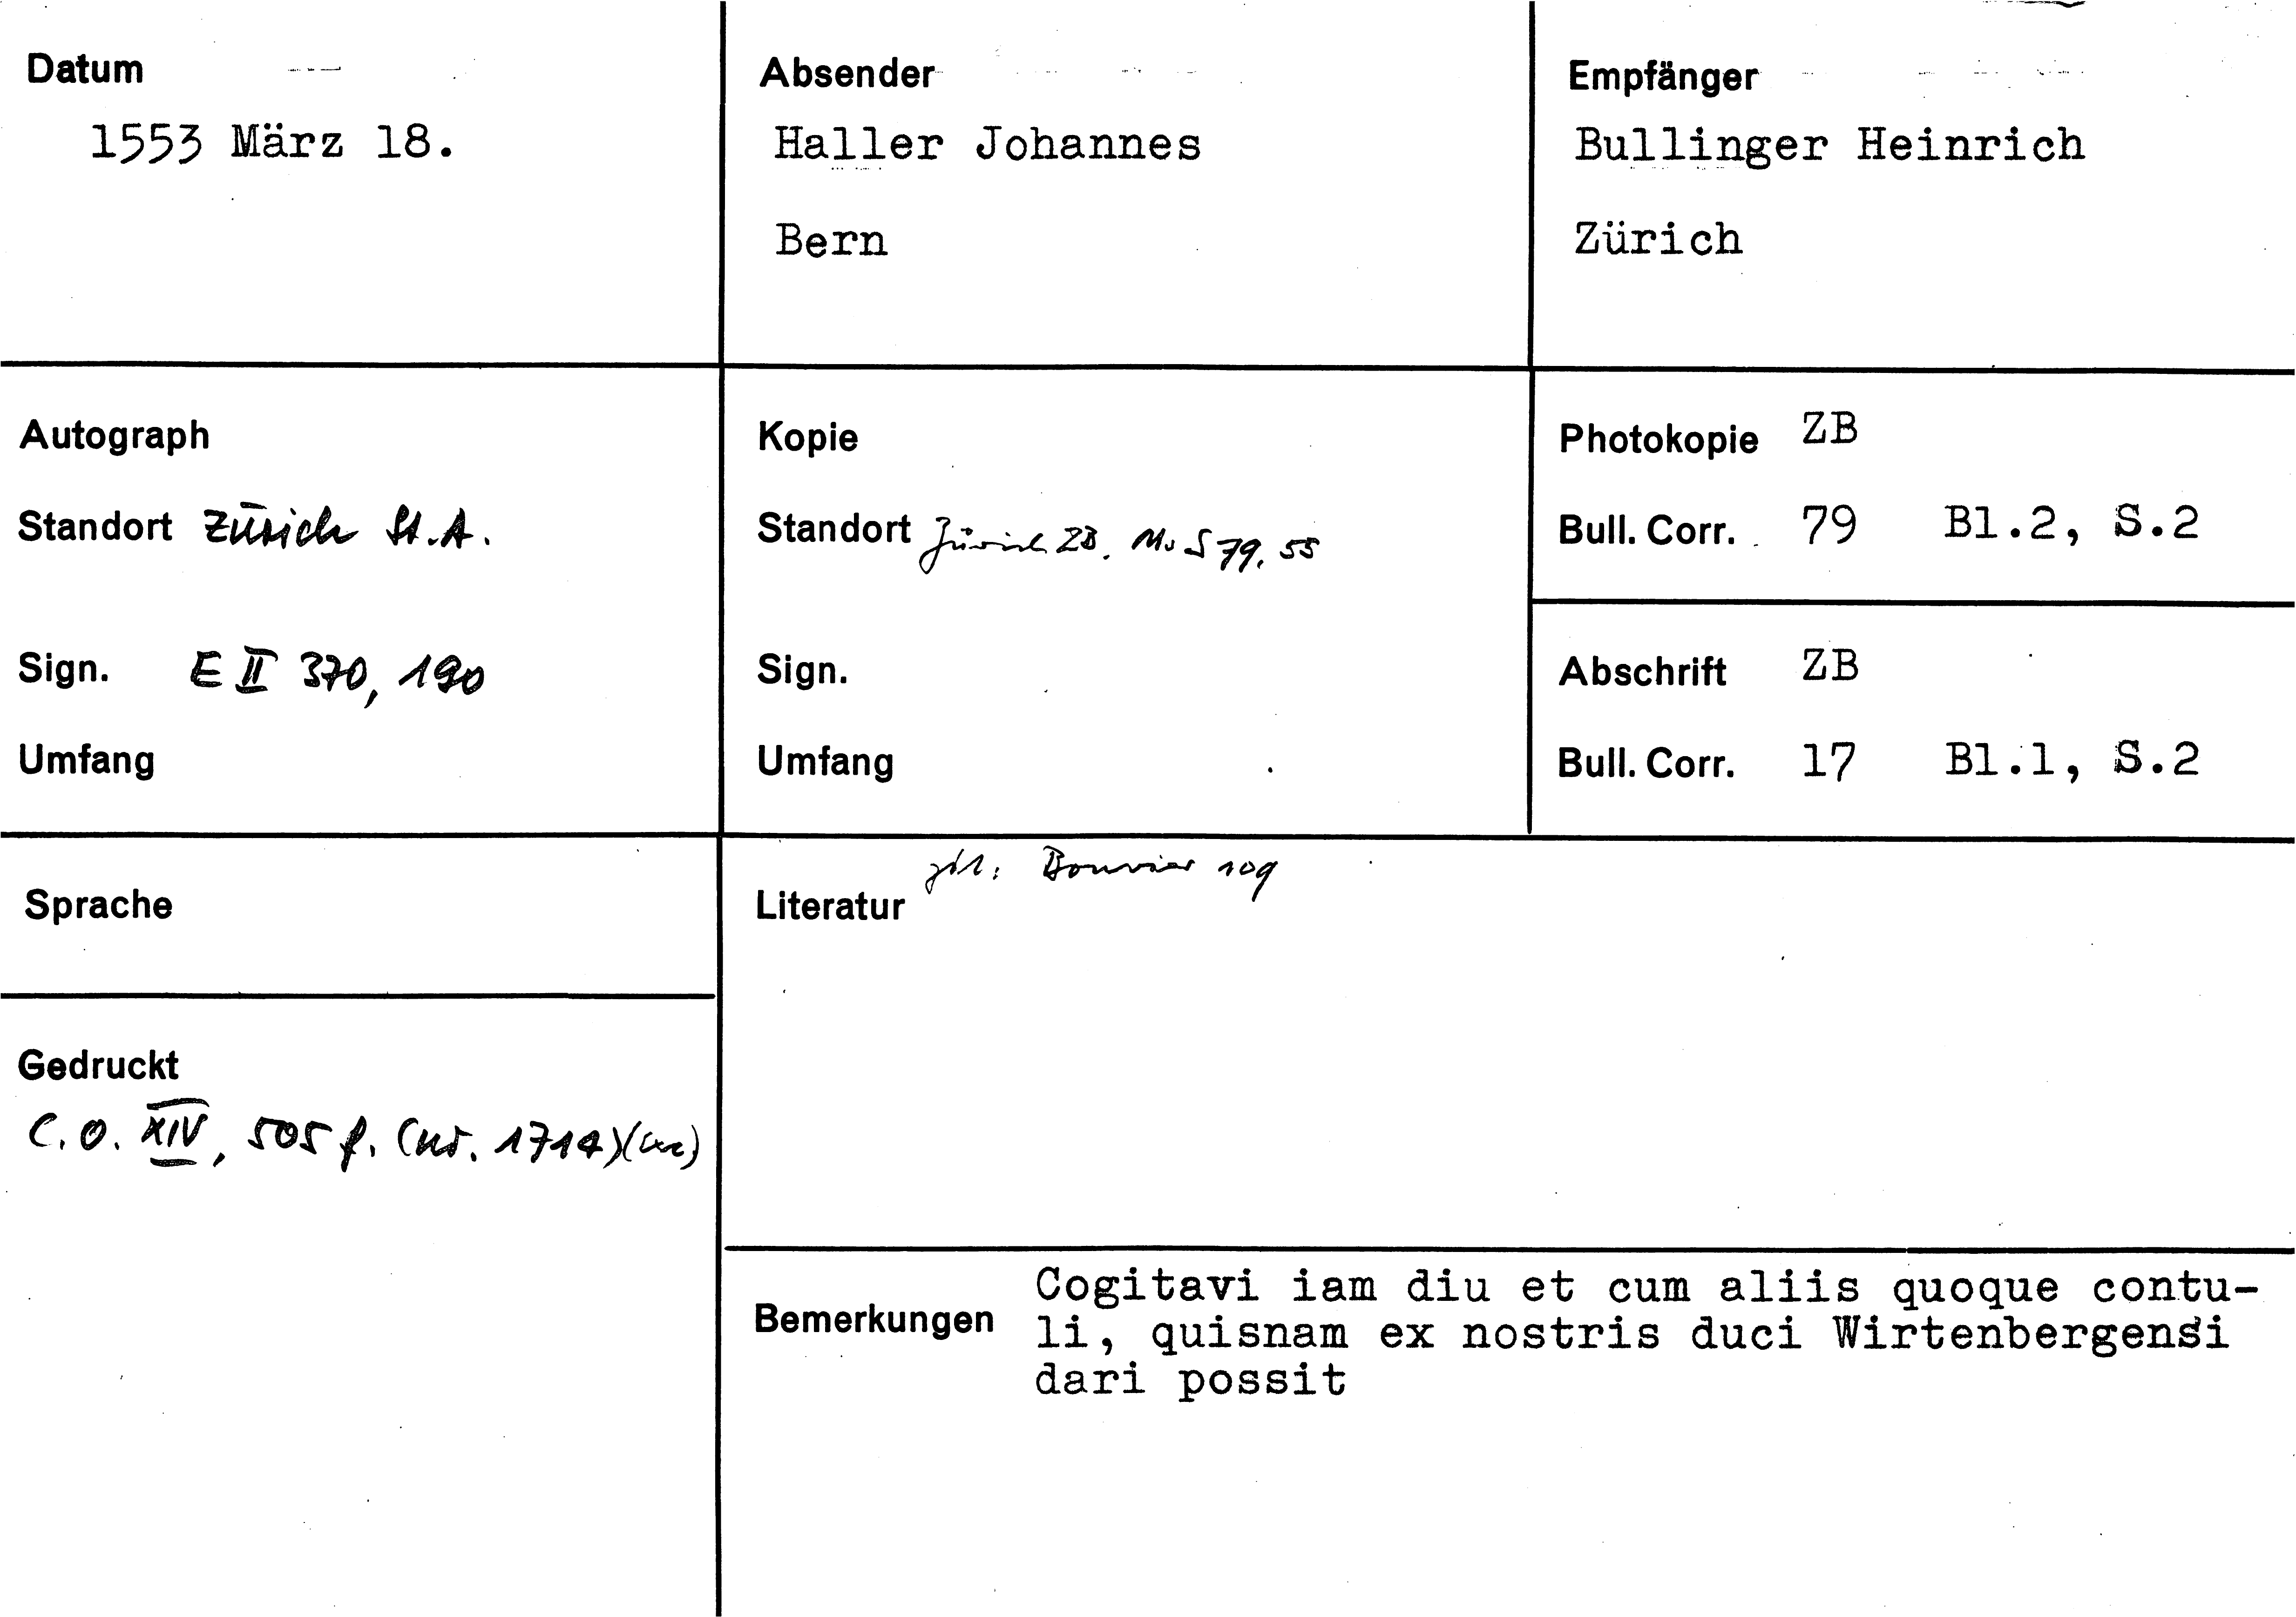 Datum
1553 März 18.
Absender
Haller Johannes
Bern
Empfänger
Bullinger Heinrich
Zürich
Autograph
Standort Zürich St.A.
Sign. E II 370, 190
Umfang
Kopie
Standort Zürich ZB. Ms S 79, 55
Sign.
Umfang
Photokopie ZB
Bull. Corr. 79 Bl.2, S.2
Abschrift ZB
Bull. Corr. 17 Bl.1, S.2
Sprache
Gedruckt
C.O. XIV, 505 f. (nr. 1714)
Literatur
Bouvier 109
Bemerkungen
Cogitavi iam diu et cum aliis quoque contu-
li, quisnam ex nostris duci Wirtenbergensi
dari possit